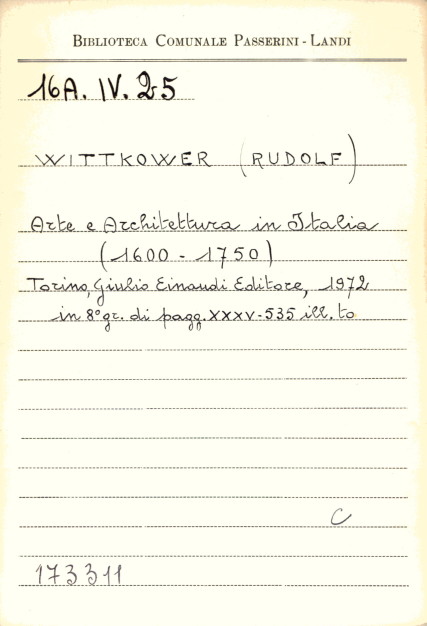 BIBLIOTECA COMUNALE PASSERINI - LANDI
16A. IV. 25
WITTKOWER (RUDOLF)
Arte e Architettura in Italia
(1600 - 1750)
Torino, Giulio Einaudi Editore, 1972
in 8° gr. di pagg. XXXV-535 ill. to
C
173311